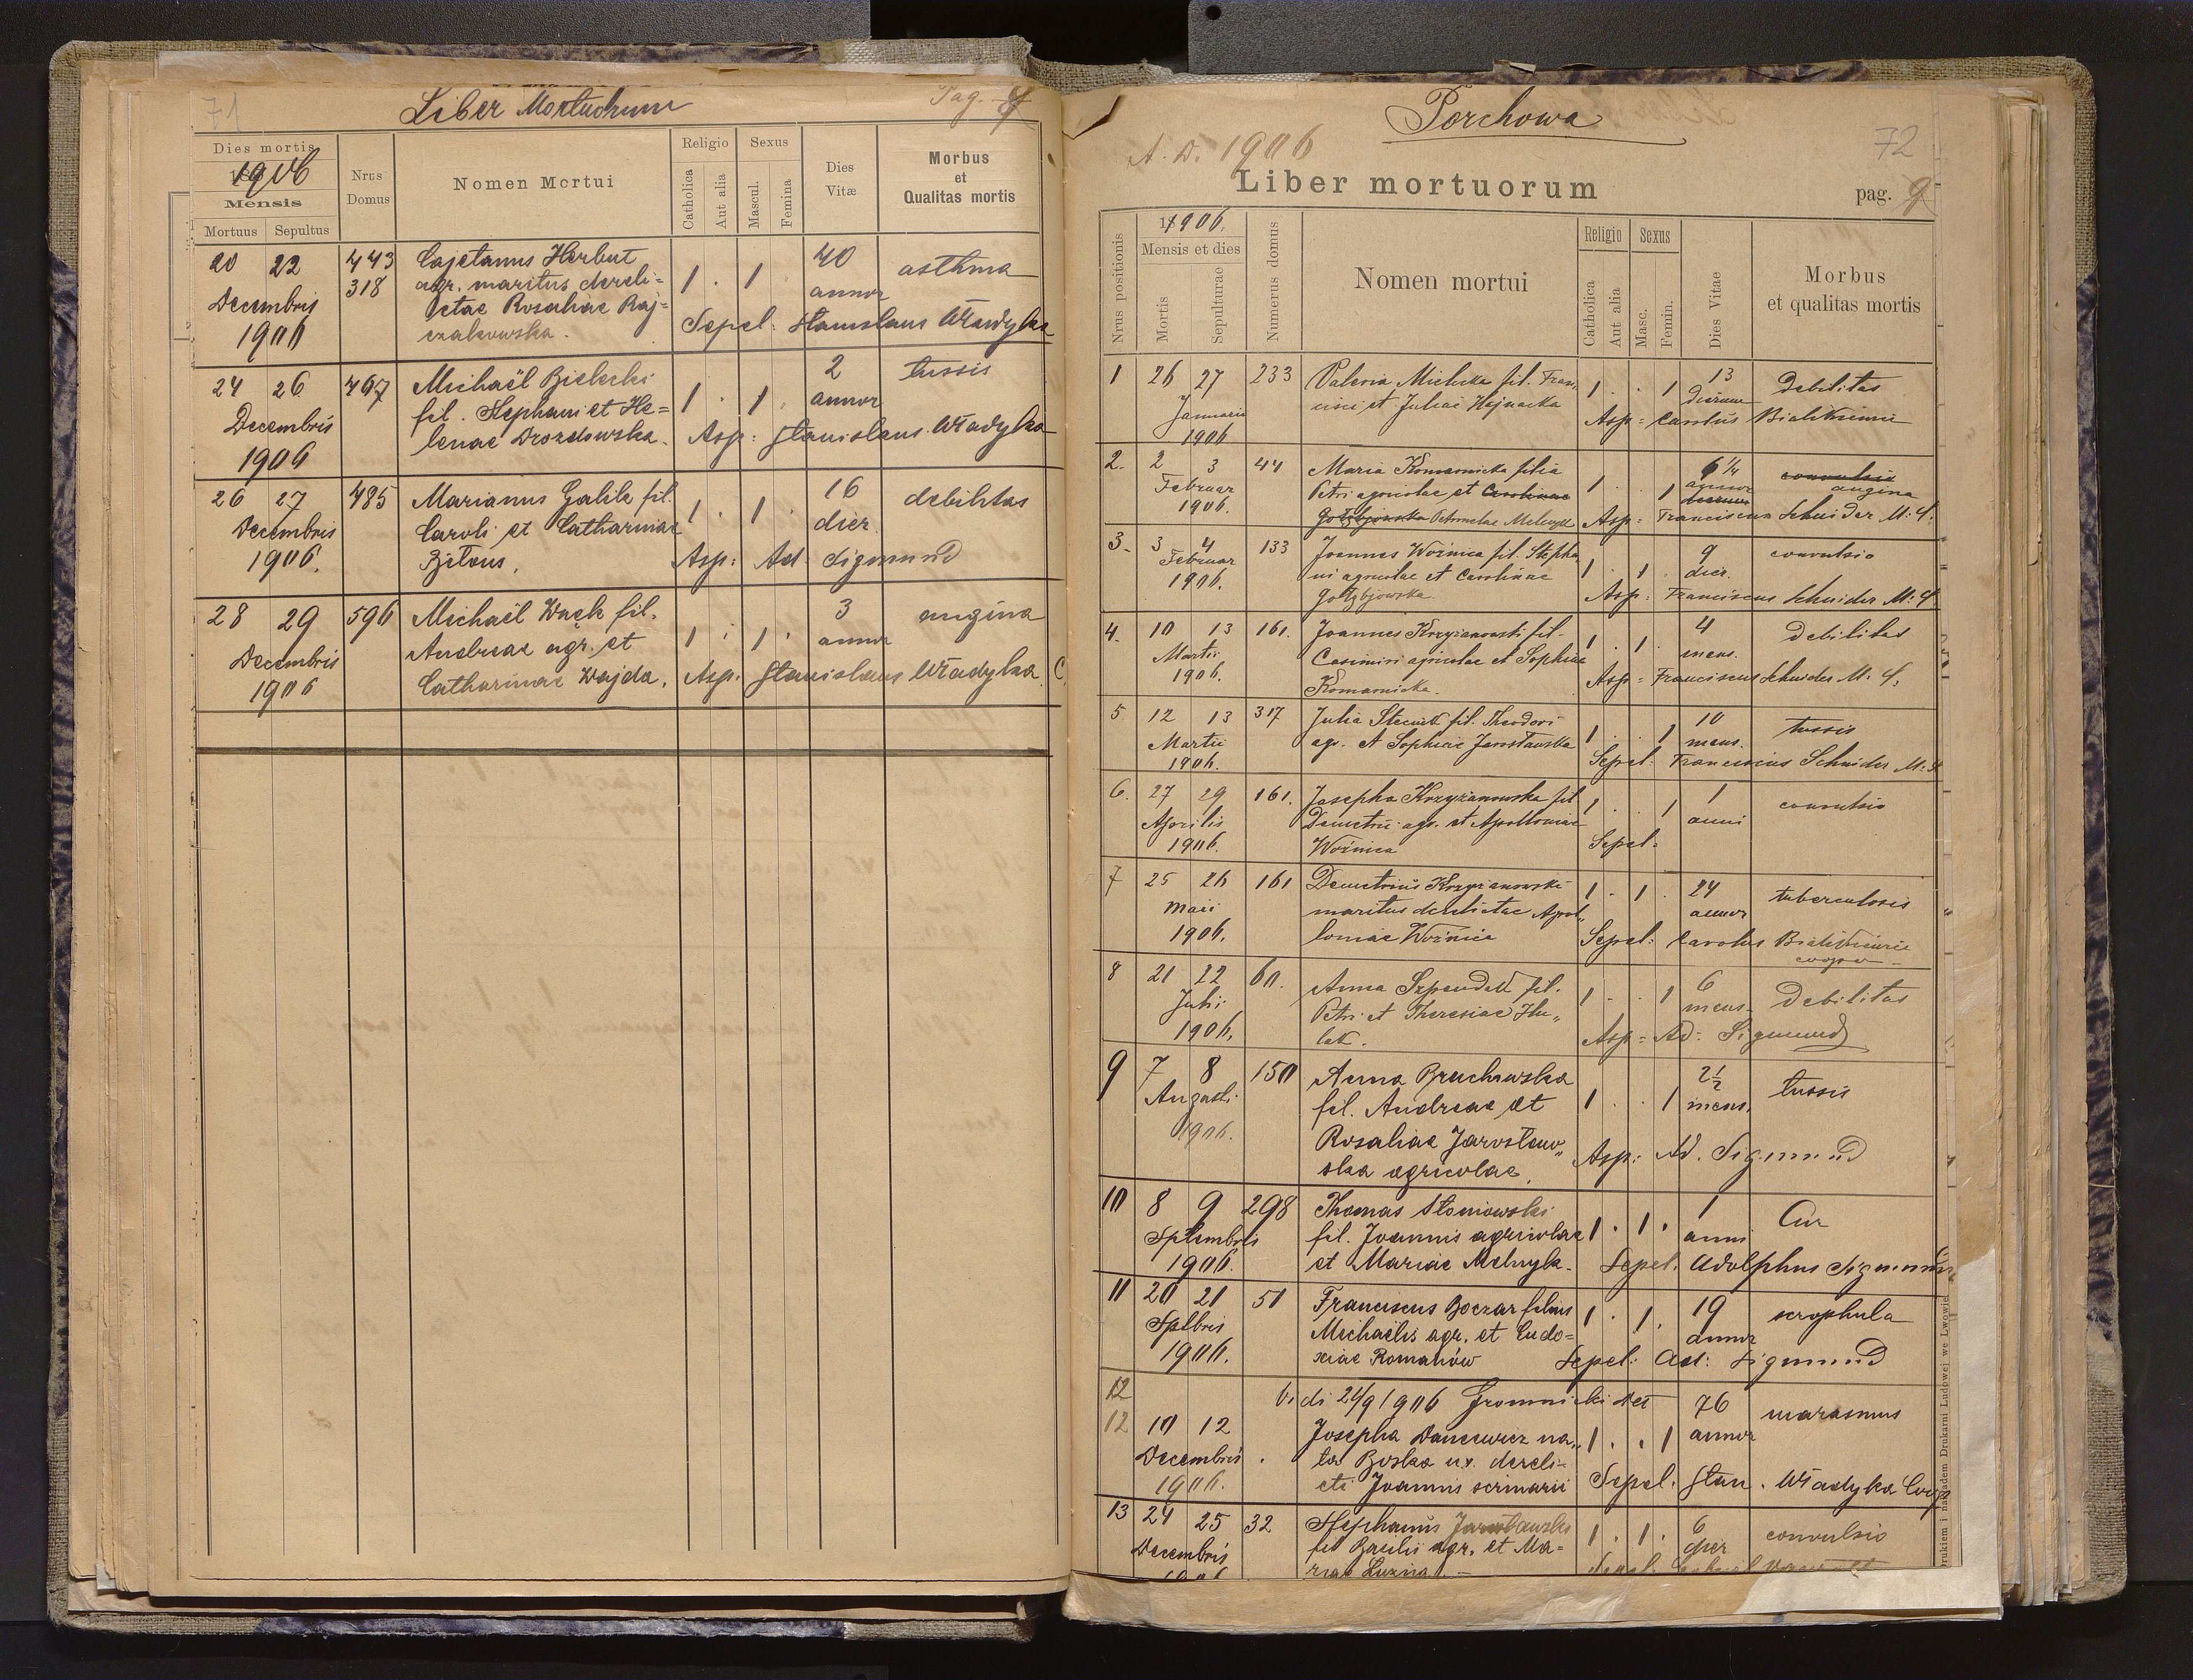 71
Liber Mortuorum
Pag.
Dies mortis
1906
Mensis
Mortuus Sepultus
Nrus Domus
Nomen Mortui
Religio
Catholica
Aut alia
Sexus
Mascul.
Femina
Dies Vitæ
Morbus et Qualitas mortis
20 22 443 Cajetanus Herbut 40 asthma
318 agr. maritus dereli= 1 . 1 . annor
Decembris ctae Rosaliae Raj=
1906 czakowska. Sepel: Stanislaus Władyka
24 26 467 Michaël Bielecki 2 tussis
Decembris fil. Stephani et He= 1 . 1 annor
1906 lenae Drozdowska. Asp: Stanislaus Władyka
26 27 485 Marianus Galik fil. 1 . 1 . 16 debilitas
Decembris Caroli et Catharinae dier.
1906. Bilous. Asp: Ad. Sigmund
28 29 596 Michaël Wack fil. 3 angina
Decembris Andreae agr. et 1 . 1 . annor
1906 Catharinae Wajda. Asp. Stanislaus Władyka C
Porchowa
A. D. 1906
72
Liber mortuorum
pag. 9
Nrus positionis
1906.
Mensis et dies
Mortis
Sepulturae
Numerus domus
Nomen mortui
Religio
Catholica
Aut alia
Sexus
Masc.
Femin.
Dies Vitae
Morbus et qualitas mortis
1 26 27 233 Valeria Mielnicka fil. Fran, 1 . . 1 13 debilitas
Januarii cisci et Juliae Hajnacka dierum
1906 Asp: Carolus
2. 2 3 44 Maria Komarnicka filia 1 . . 1 6 1/4 convulsio
Februar Petri agricolae et Carolinae annor dierum angina
1906. Gołębjowska Petronelae Melnyk Asp: Franciscus Schneider M: S:
3. 3 4 133 Joannes Woźnica fil. Stepha 1 . 1 . 9 convulsio
Februar ni agricolae et Carolinae dier.
1906. Gołębjowska. Asp: Franciscus Schneider M: S
4. 10 13 161. Joannes Krzyżanowski fil. 1 . 1 . 4 debilitas
Martii Casimiri agricolae et Sophiae mens.
1906. Komarnicka. Asp: Franciscus Schneider M. S.
5 12 13 317 Julia fil. Theodori 1 . . 1 10 tussis
Martii agr. et Sophiae Jarosławska mens.
1906. Sepel: Franciscus Schneider M: S
6. 27 29 161. Josepha Krzyżanowska fil 1 . . 1 1 convulsio
Aprilis Demetrii agr. et Apolloniae anni
1906. Woźnica Sepel:
7 25 26 161 Demetrius Krzyżanowski 1 . 1 . 24 tuberculosis
Maii maritus derelictae Apol„ annor
1906. loniae Woźnica Sepel: Carolus
cooper
8 21 22 60. Anna Szpendał fil. 1 . . 1 6 debilitas
Julii Petri et Theresiae Hu„ mens.
1906. lak. Asp: Ad: Sigmund
9 7 8 150 Anna Bruchowska 2½ tussis
Augusti fil. Andreae et 1 . . 1 mens.
1906. Rosaliae Jarosław„
ska agricolae. Asp: Ad. Sigmund
10 8 9 298 Thomas Słoniowski 1 . 1 . 1
Sptembris fil. Joannis agricolae anni
1906. et Mariae Melnyk. Sepel. Adolphus Sigmund
11 20 21 51 Franciscus Boczar filius 1 . 1 . 19 scrophula
Sptbris Michaëlis agr. et Eudo= annor
1906. xiae Romanów Sepel: Ad: Sigmund
12 Vidi 24/9 1906 Gromnicki
12 10 12 Josepha Dancewicz na„ 1 . . 1 76 annor marasmus
Decembris . ta Boska ux. dereli=
1906. cti Joannis scrinarii Sepel. Stan. Władyka Coop
13 24 25 32 Stephanus Jarosławski 1 . 1 . 6 convulsio
Decembris fil Basilii agr. et Ma= dier
1906 riae Luzna Sepel.
Drukiem i nakładem Drukarni Ludowej we Lwowie